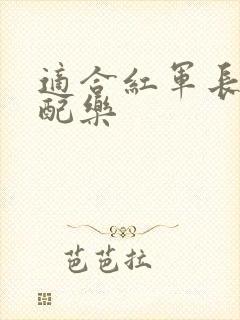 適合紅軍長
配樂
芭芭拉